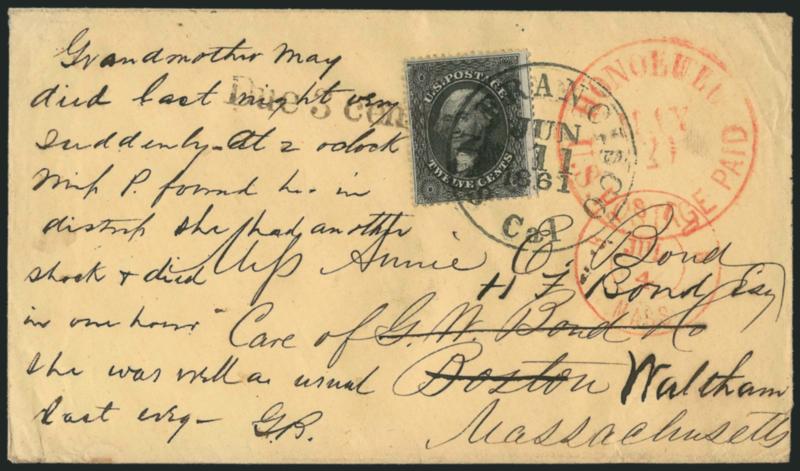 Grandmother May
died last night very
suddenly - At 2 oclock
Miss P. found her in
distress she had another
shock & died
in one hour
she was well as usual
last evg -
G.B.
Due 3 cen
U.S. POSTAGE
TWELVE CENTS
FRANCISCO
JUN
11
1861
Cal
HONOLULU
U.S. POSTAGE PAID
MAY
21
JUL
4
MASS
Miss Annie C. Bond
H F Bond Esq
Care of G. W. Bond & Co
Boston Waltham
Massachusetts